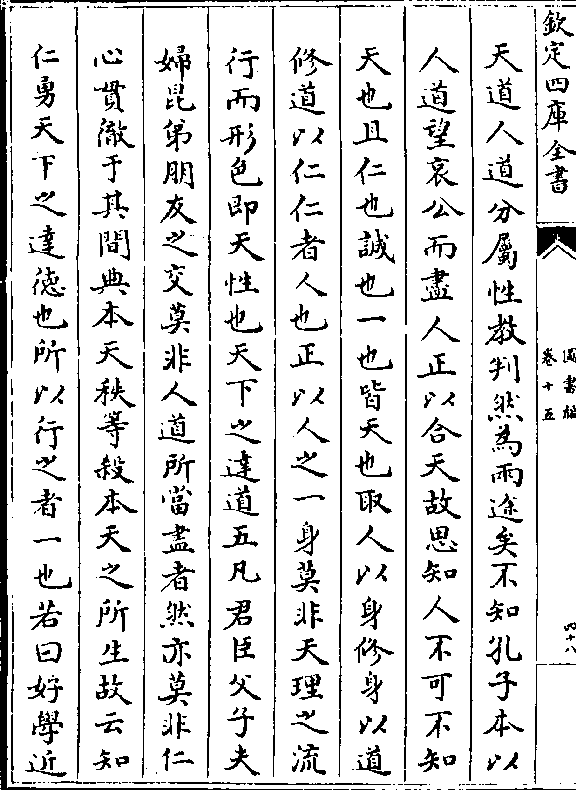 欽定四庫全書
圖書編
卷十五
四十八
天道人道分屬性教判然為兩途矣不知孔子本以
人道望哀公而盡人正以合天故思知人不可不知
天也且仁也誠也一也皆天也取人以身修身以道
修道以仁仁者人也正以人之一身莫非天理之流
行而形色即天性也天下之達道五凡君臣父子夫
婦昆弟朋友之交莫非人道所當盡者然亦莫非仁
心貫徹于其間典本天秩等殺本天之所生故云知
仁勇天下之達德也所以行之者一也若曰好學近